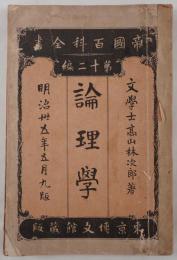 帝國百科全書
第十二編
文學士高山林次郎著
論理學
明治卅五年五月九版
東京博文館蔵版